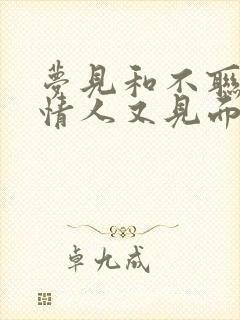 夢見和不聯
情人又見面
卓九成